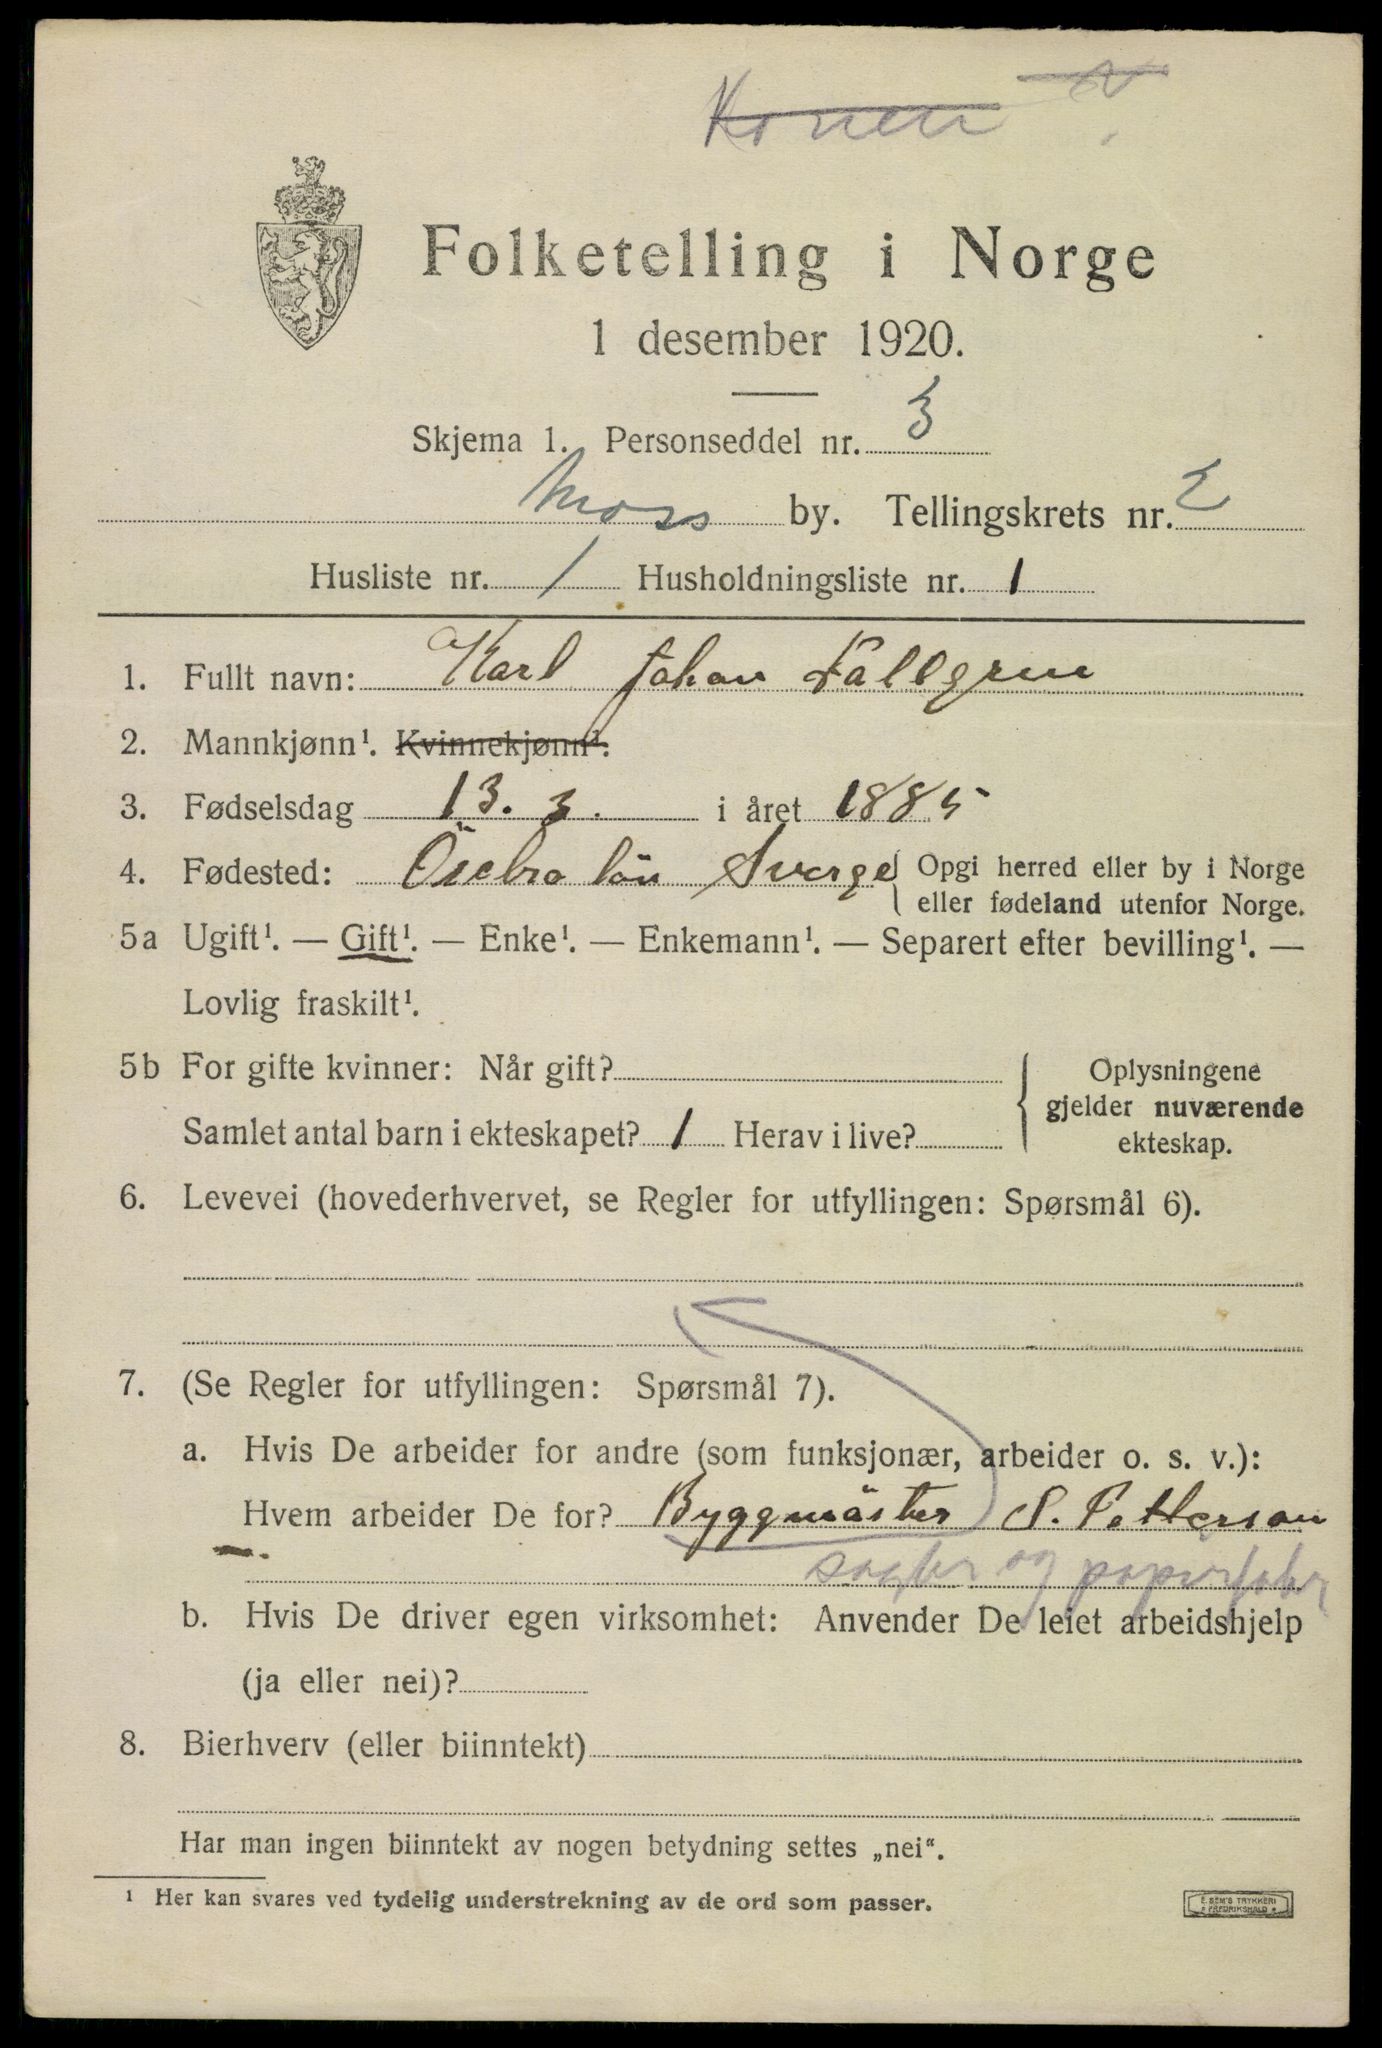 Konen
Folketelling i Norge
1 desember 1920.
Skjema 1. Personseddel nr. 3
Moss by. Tellingskrets nr. 2
Husliste nr. 1 Husholdningsliste nr. 1
1. Fullt navn: Karl Johan Fallgren
2. Mannkjønn¹. Kvinnekjønn¹.
3. Fødselsdag 13. 3. i året 1885
4. Fødested: Örebro län Sverge Opgi herred eller by i Norge
eller fødeland utenfor Norge.
5a Ugift¹. — Gift¹. — Enke¹. — Enkemann¹. — Separert efter bevilling¹. —
Lovlig fraskilt¹.
5b For gifte kvinner: Når gift?
Samlet antal barn i ekteskapet? 1 Herav i live?
Oplysningene
gjelder nuværende
ekteskap.
6. Levevei (hovederhvervet, se Regler for utfyllingen: Spørsmål 6).
7. (Se Regler for utfyllingen: Spørsmål 7).
a. Hvis De arbeider for andre (som funksjonær, arbeider o. s. v.):
Hvem arbeider De for? Byggmäster S. Petterson
og papirfabr
b. Hvis De driver egen virksomhet: Anvender De leiet arbeidshjelp
(ja eller nei)?
8. Bierhverv (eller biinntekt)
Har man ingen biinntekt av nogen betydning settes „nei“.
¹ Her kan svares ved tydelig understrekning av de ord som passer.
E. SEM'S TRYKKERI
FREDRIKSHALD